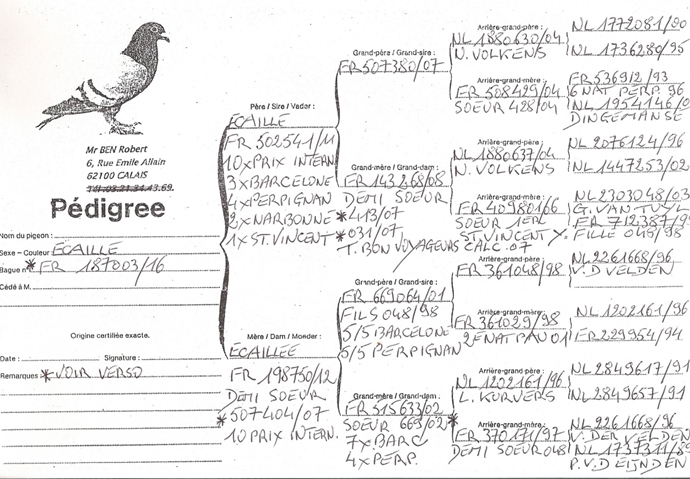 Mr BEN Robert
6, Rue Emile Allain
62100 CALAIS
Tél. 03.21.34.13.69.
Pédigree
Nom du pigeon :
Sexe - Couleur ECAILLE
Bague n° * FR 187003/16
Cédé à M.
Origine certifiée exacte.
Date : Signature :
Remarques : * VOIR VERSO
Père / Sire / Vader :
ECAILLE
FR 502541/11
10 x PRIX INTERN
3 x BARCELONE
4 x PERPIGNAN
2 x NARBONNE
1 x ST. VINCENT
Mère / Dam / Moeder :
ECAILLEE
FR 198750/12
DEMI SOEUR
* 507404/07
10 PRIX INTERN.
Grand-père / Grand-sire :
FR 507380/07
Grand-mère / Grand-dam :
FR 143268/08
DEMI SOEUR
* 413/07
* 031/07
T. BON VOYAGEURS CALC. 07
Grand-père / Grand-sire :
FR 669064/01
FILS 048/98
5/5 BARCELONE
5/5 PERPIGNAN
Grand-mère / Grand-dam :
FR 515633/02
SOEUR 669/02 *
7 x BARC
4 x PERP.
Arrière-grand-père :
NL 1880630/04
N. VOLKENS
Arrière-grand-mère :
FR 508429/04
SOEUR 428/04
Arrière-grand-père :
NL 1880637/04
N. VOLKENS
Arrière-grand-mère :
FR 409801/66
SOEUR 1ER
ST. VINCENT
Arrière-grand-père :
FR 361048/98
Arrière-grand-mère :
FR 361029/98
2E NAT PAU 01
Arrière-grand-père :
NL 1202161/96
L. KURVERS
Arrière-grand-mère :
FR 370171/97
DEMI SOEUR 048
NL 1772081/90
NL 1736280/95
FR 536912/93
6 NAT PERP. 96
NL 1954146/0
DINGEMANSE
NL 2076124/96
NL 1447253/02
NL 2303048/03
G. VAN TUYL
FR 712387/9
FILLE 049/98
NL 2261668/96
V. D VELDEN
NL 1202161/96
FR 229954/94
NL 2849617/91
NL 2849657/91
NL 2261668/96
V. DER VELDEN
NL 1737311/89
P. V. D EIJNDEN